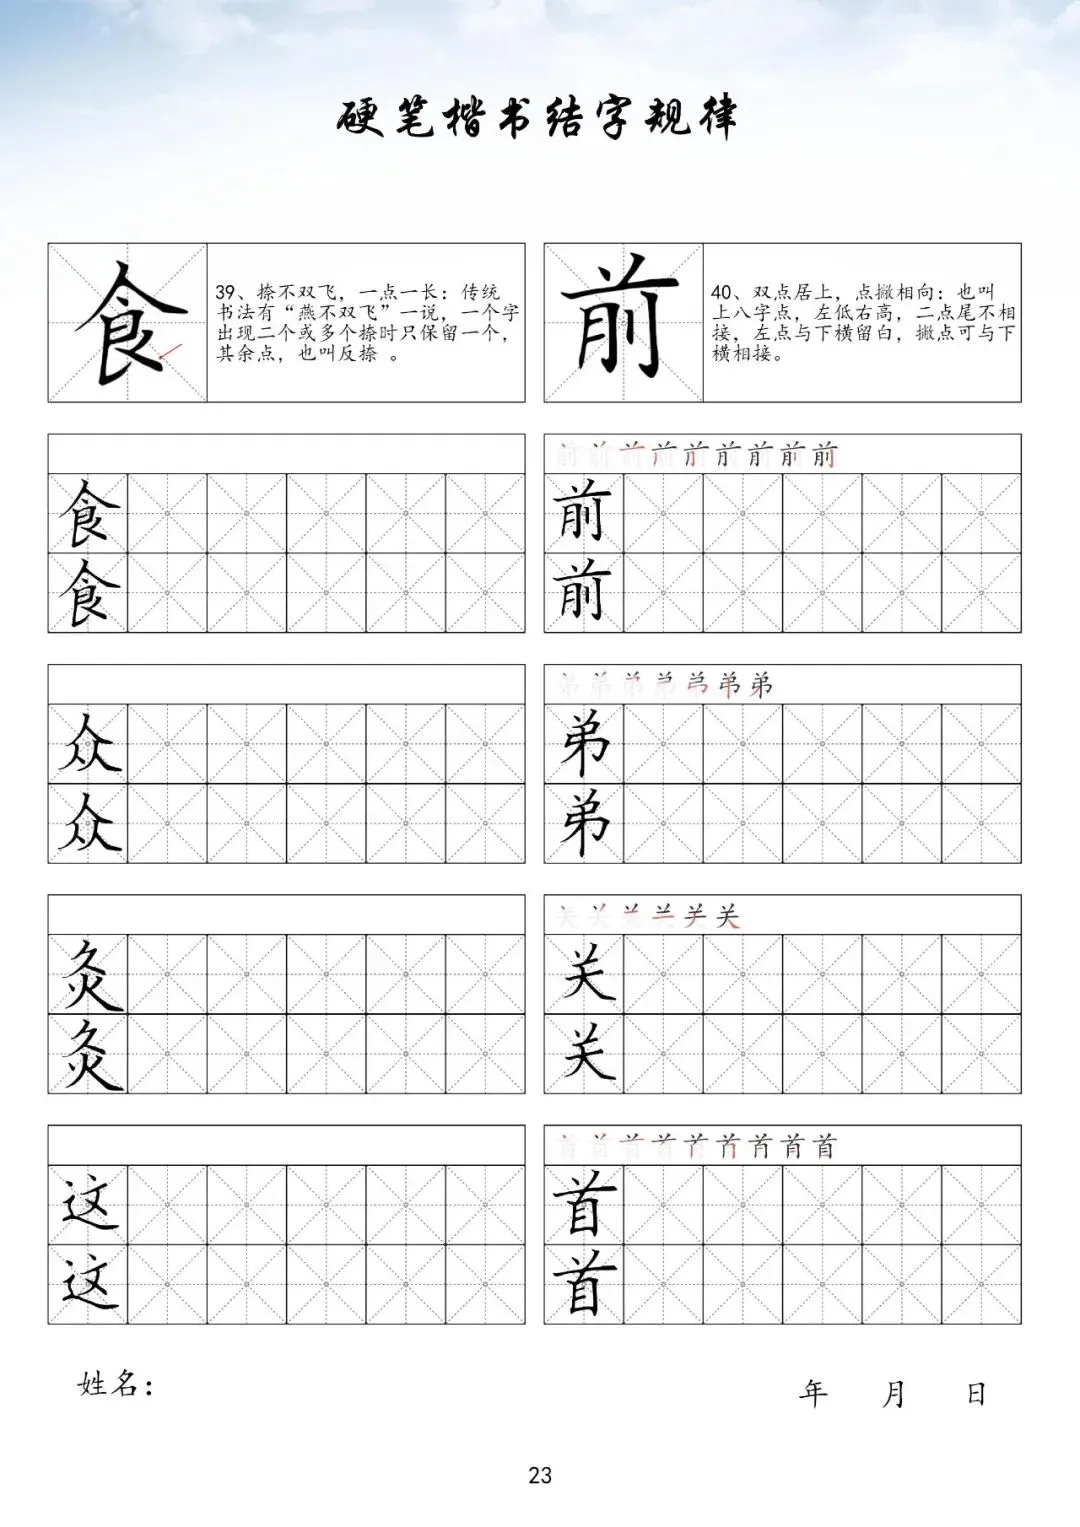 硬笔楷书结字规律
食
39、捺不双飞，一点一长：传统
书法有“燕不双飞”一说，一个字
出现二个或多个捺时只保留一个，
其余点，也叫反捺 。
前
40、双点居上，点撇相向：也叫
上八字点，左低右高，二点尾不相
接，左点与下横留白，撇点可与下
横相接。
食
食
前前前前前前前前前
前
前
众
众
弟弟弟弟弟弟弟
弟
弟
灸
灸
关关关关关关
关
关
这
这
首首首首首首首首首
首
首
姓名：
年 月 日
23